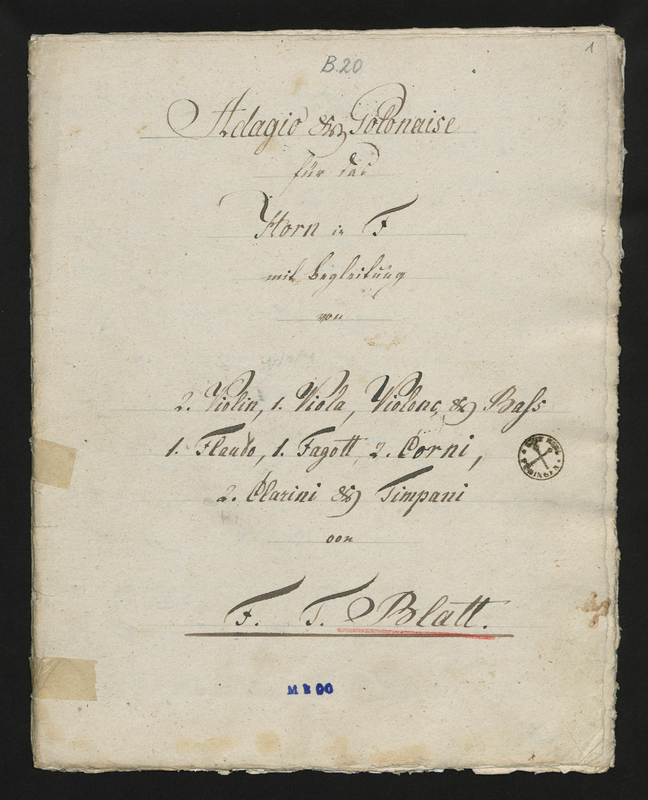 1
B.20
Adagio & Polonaise
für das
Horn in F
mit Begleitung
von
2. Violin, 1. Viola, Violonc, & Bass
1. Flauto, 1. Fagott, 2. Corni,
2. Clarini & Timpani
von
F. T. Blatt.